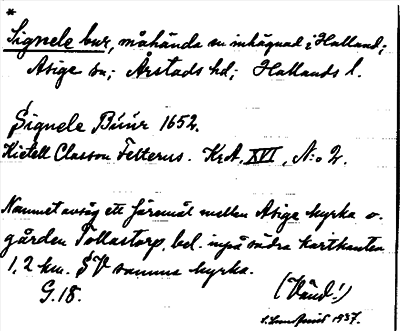 *
Signele bur, måhända en inhägnad i Halland;
Asige sn; Årstads hd; Hallands l.
Signele Búúr 1652.
Kietell Classon Felterus. KrA, XVI, N:o 2.
Namnet avsåg ett färemål mellan Asige kyrka o.
gården Tollastorp, bel. inpå södra kartkanten
1,2 km. SV samma kyrka.
G.18.
(Vänd!)
1937.